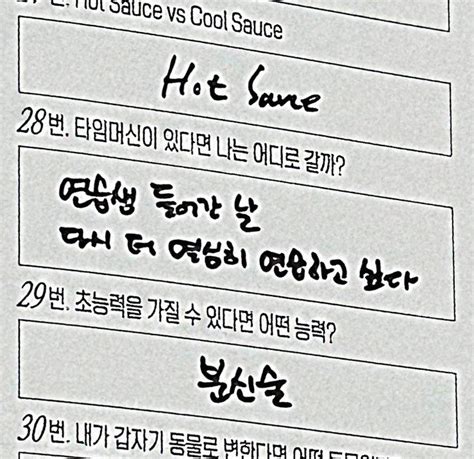 번. Hot Sauce vs Cool Sauce
Hot Sauce
28번. 타임머신이 있다면 나는 어디로 갈까?
연습생 들어간 날
다시 더 열심히 연습하고 싶다
29번. 초능력을 가질 수 있다면 어떤 능력?
분신술
30번. 내가 갑자기 동물로 변한다면 어떤